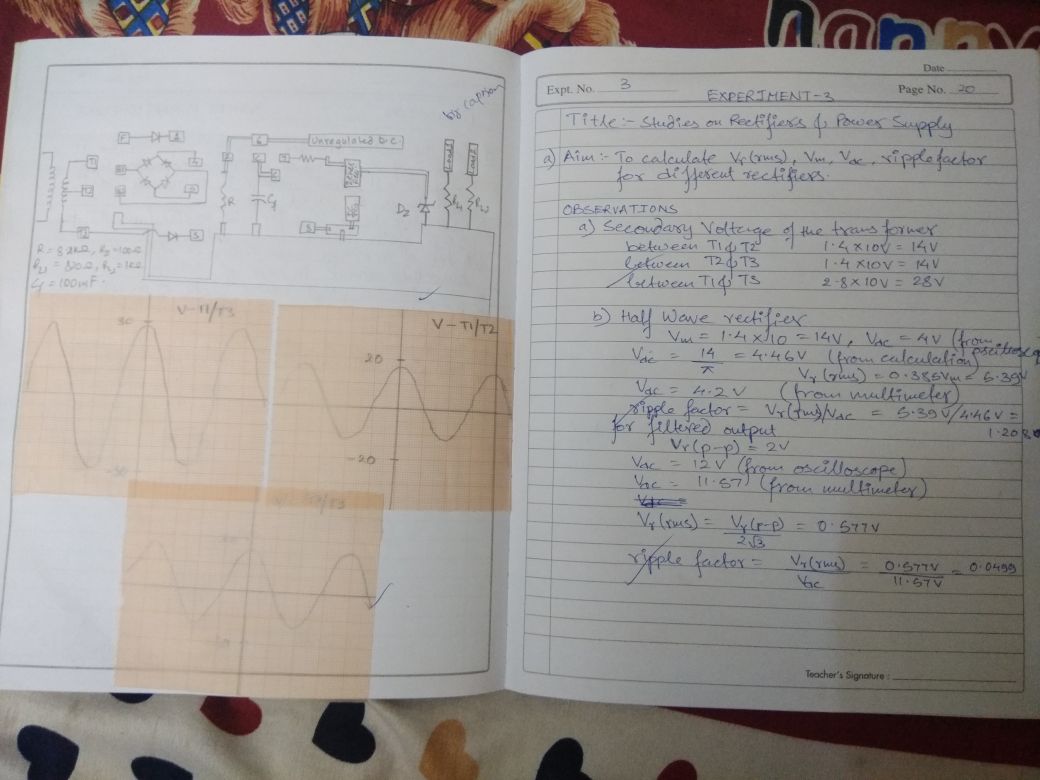 Unregulated D.C.
R
D2
RL1
RL2
R = 8.2KΩ, R2 = 100Ω
RL1 = 820Ω, RL2 = 1KΩ
V-T1/T3
30
-30
V-T1/T2
20
-20
Date
Expt. No. 3
Page No. 20
EXPERIMENT-3
Title:- Studies on Rectifiers & Power Supply
a) Aim:- To calculate Vr(rms), Vm, Vdc, ripple factor
for different rectifiers.
OBSERVATIONS
a) Secondary Voltage of the transformer
between T1 & T2 1.4 x 10V = 14V
between T2 & T3 1.4 x 10V = 14V
between T1 & T3 2.8 x 10V = 28V
b) Half Wave rectifier
Vm = 1.4 x 10 = 14V, Vdc = 4V (from
Vdc = 14/π = 4.46V (from calculation)
Vr(rms) = 0.385Vm = 5.39V
Vdc = 4.2V (from multimeter)
ripple factor = Vr(rms)/Vdc = 5.39V/4.46V =
for filtered output
Vr(p-p) = 2V
Vdc = 12V (from oscilloscope)
Vdc = 11.57 (from multimeter)
Vr(rms) = Vr(p-p)/2√3 = 0.577V
ripple factor = Vr(rms)/Vdc = 0.577V/11.57V = 0.0499
Teacher's Signature :